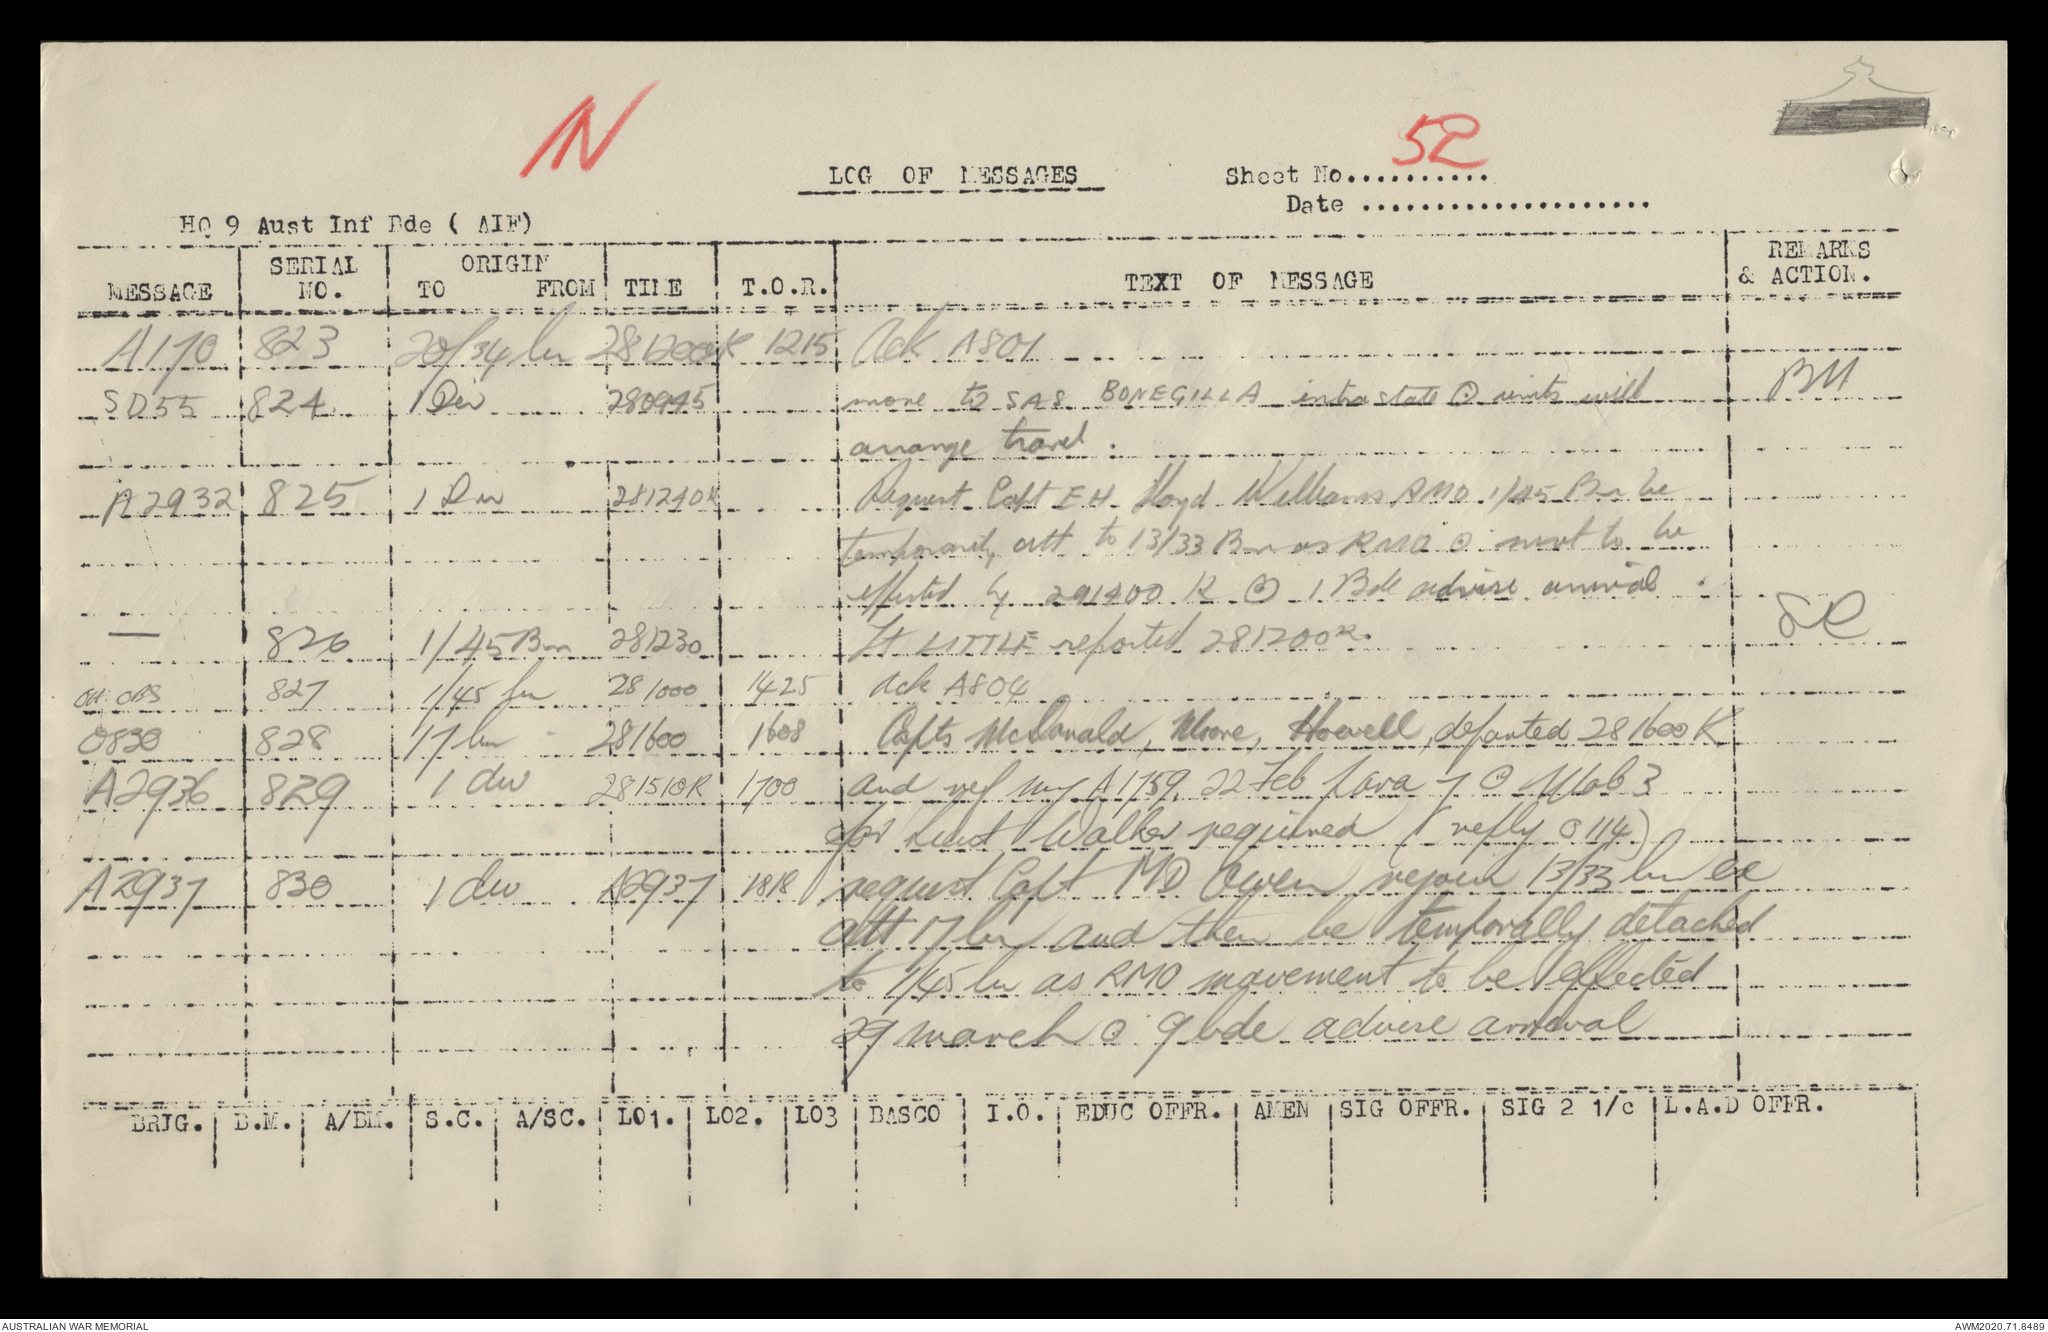 52
IN
52
LOG OF MESSAGES
Sheet No..........
Date ....................
HQ 9 Aust Inf Bde ( AIF)
MESSAGE SERIAL NO. ORIGIN TO FROM TIME T.O.R. TEXT OF MESSAGE REMARKS & ACTION.
A170 823 20/34 bn 281200K 1215 Ack A801
SD55 824 1 Div 280945 move to SAS BONEGILLA intrastate units will BM
arrange travel .
A2932 825 1 Div 281240K Request Capt EH Lloyd Williams RMO 1/45 Bn be
temporarily att to 13/33 Bn as RMO mvt to be
effected by 291400 K 1 Bde advise arrival .
— 826 1/45 Bn 281230 Lt LITTLE reported 281200K. SC
827 1/45 bn 281000 1425 Ack A804
O830 828 17 bn 281600 1608 Capts McDonald, Moore, Howell, departed 281600K
A2936 829 1 div 281510K 1700 and ref my A1759 22 Feb para 7 Mob 3
for Lieut Walker required ( reply O 114)
A2937 830 1 div A2937 1818 request Capt MD Owen rejoin 13/33 bn ex
att 17 bn and then be temporally detached
to 1/45 bn as RMO movement to be effected
29 march 9 bde advise arrival
BRIG. B.M. A/BM. S.C. A/SC. LO1. LO2. LO3 BASCO I.O. EDUC OFFR. AMEN SIG OFFR. SIG 2 1/c L.A.D OFFR.
AUSTRALIAN WAR MEMORIAL AWM2020.71.8489